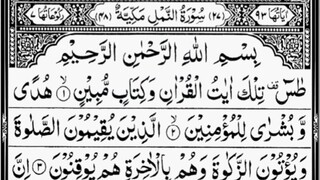 اٰيَاتُهَا ٩٣ (٢٧) سُوْرَةُ النَّمْلِ مَكِّيَّةٌ (٤٨) رُكُوْعَاتُهَا ٧
بِسْمِ اللّٰهِ الرَّحْمٰنِ الرَّحِيْمِ
طٰسٓ ۚ تِلْكَ اٰيٰتُ الْقُرْاٰنِ وَكِتَابٍ مُّبِيْنٍ ۙ ﴿١﴾ هُدًى
وَّ بُشْرٰى لِلْمُؤْمِنِيْنَ ۙ ﴿٢﴾ الَّذِيْنَ يُقِيْمُوْنَ الصَّلٰوةَ
وَيُؤْتُوْنَ الزَّكٰوةَ وَهُمْ بِالْاٰخِرَةِ هُمْ يُوْقِنُوْنَ ﴿٣﴾ اِنَّ